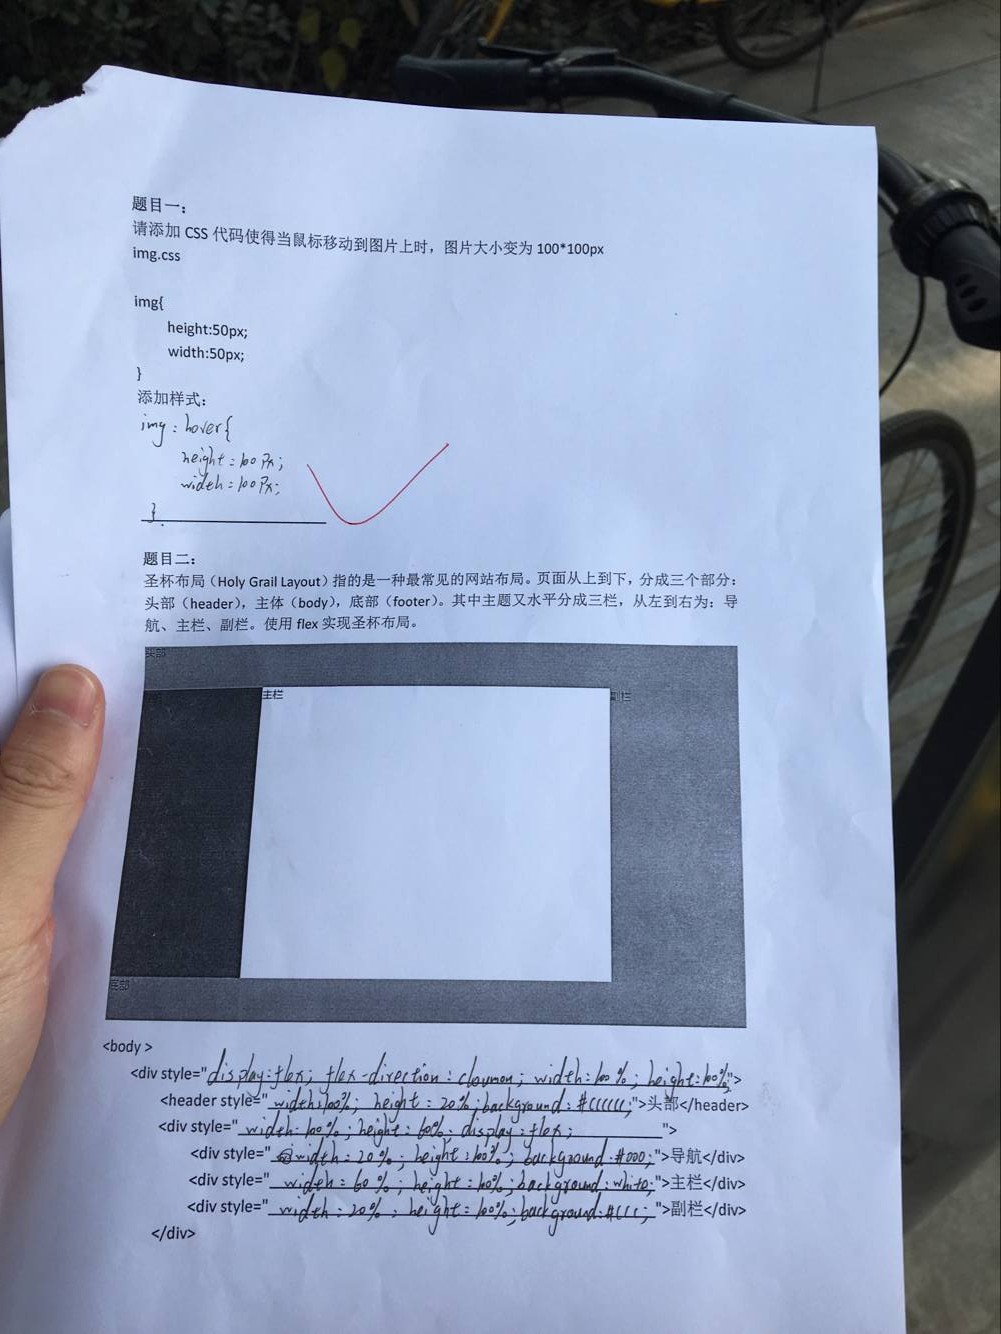 题目一：
请添加 CSS 代码使得当鼠标移动到图片上时，图片大小变为 100*100px
img.css
img{
height:50px;
width:50px;
}
添加样式：
img:hover{
height:100px;
width:100px;
}.
题目二：
圣杯布局（Holy Grail Layout）指的是一种最常见的网站布局。页面从上到下，分成三个部分：
头部（header），主体（body），底部（footer）。其中主题又水平分成三栏，从左到右为：导
航、主栏、副栏。使用 flex 实现圣杯布局。
头部
主栏
副栏
底部
<body >
<div style="display:flex; flex-direction:cloumon; width:100%; height:100%;">
<header style="width:100%; height:20%;background:#cccccc;">头部</header>
<div style="width:100%; height:60%; display:flex;">
<div style="width:20%; height:100%; background:#000;">导航</div>
<div style="width:60%; height:100%;background:white;">主栏</div>
<div style="width:20%; height:100%;background:#ccc;">副栏</div>
</div>